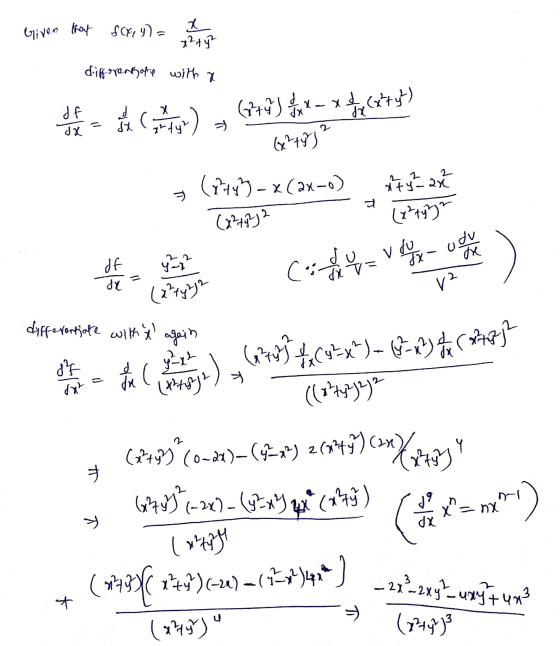 Given that f(x, y) = x / x²+y²
differentiate with x
df/dx = d/dx ( x / x²+y² ) ⇒ (x²+y²) d/dx x - x d/dx (x²+y²) / (x²+y²)²
⇒ (x²+y²) - x (2x-0) / (x²+y²)² ⇒ x²+y²-2x² / (x²+y²)²
df/dx = y²-x² / (x²+y²)² ( ∵ d/dx u/v = v du/dx - u dv/dx / v² )
differentiate with 'x' again
d²f/dx² = d/dx ( y²-x² / (x²+y²)² ) ⇒ (x²+y²)² d/dx (y²-x²) - (y²-x²) d/dx (x²+y²)² / ((x²+y²)²)²
⇒ (x²+y²)² (0-2x) - (y²-x²) 2(x²+y²) (2x) / (x²+y²)⁴
⇒ (x²+y²)² (-2x) - (y²-x²) 4x (x²+y²) / (x²+y²)⁴ ( d/dx xⁿ = nxⁿ⁻¹ )
(x²+y²) [ (x²+y²) (-2x) - (y²-x²) 4x ] / (x²+y²)⁴ ⇒ -2x³-2xy²-4xy²+4x³ / (x²+y²)³